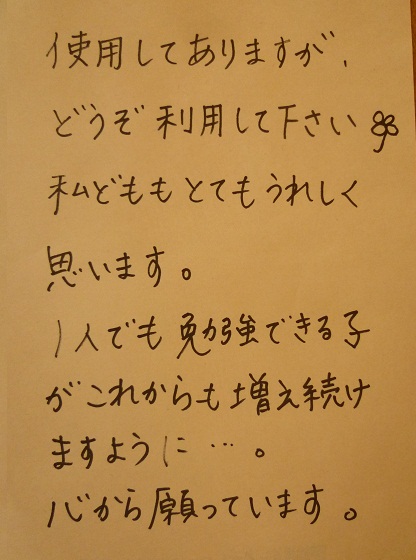 使用してありますが、
どうぞ利用して下さい
私どももとてもうれしく
思います。
1人でも勉強できる子
がこれからも増え続け
ますように…。
心から願っています。